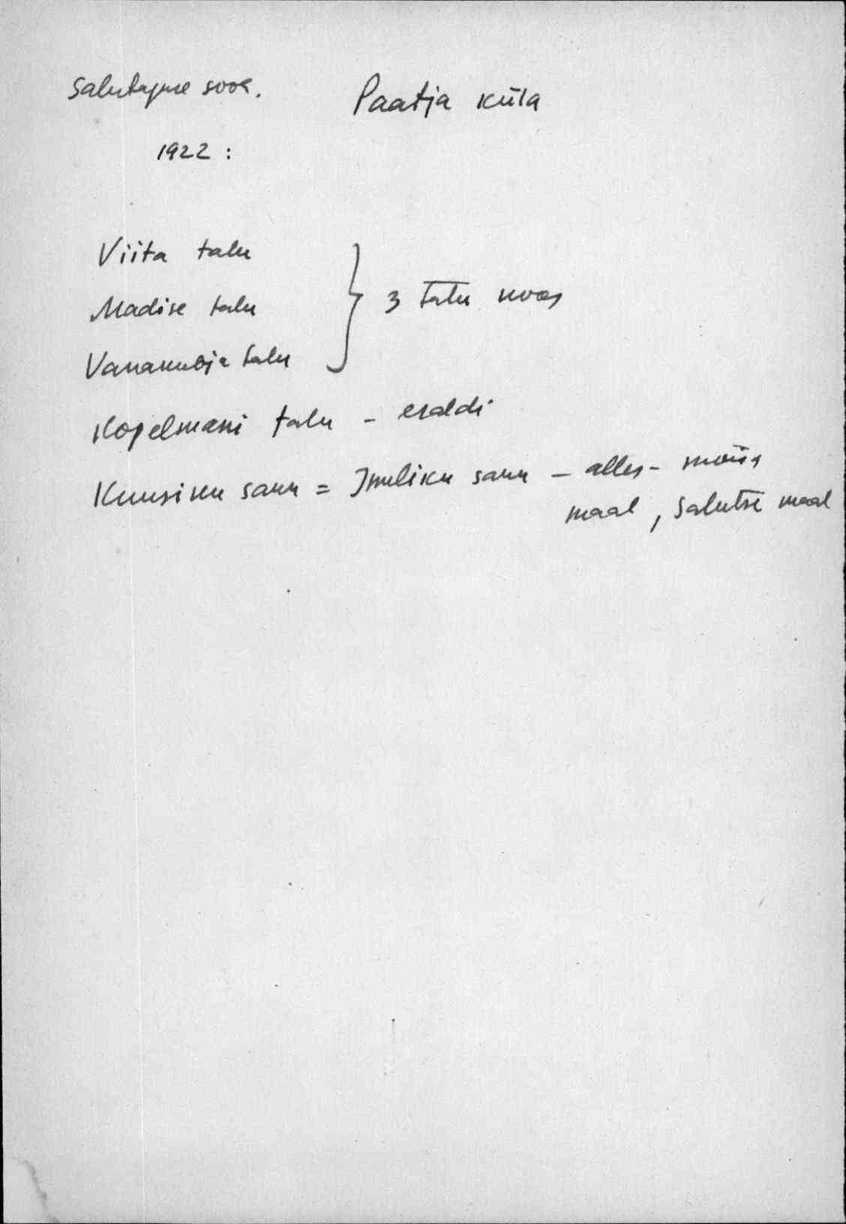 Salutaguse soos. Paatja küla
1922 :
Viita talu
Madise talu } 3 talu koos
Vanakubja talu
Kopelmani talu - eraldi
Kuusiku saun = Imeliku saun - alles - mõisa
maal, Salutse maal